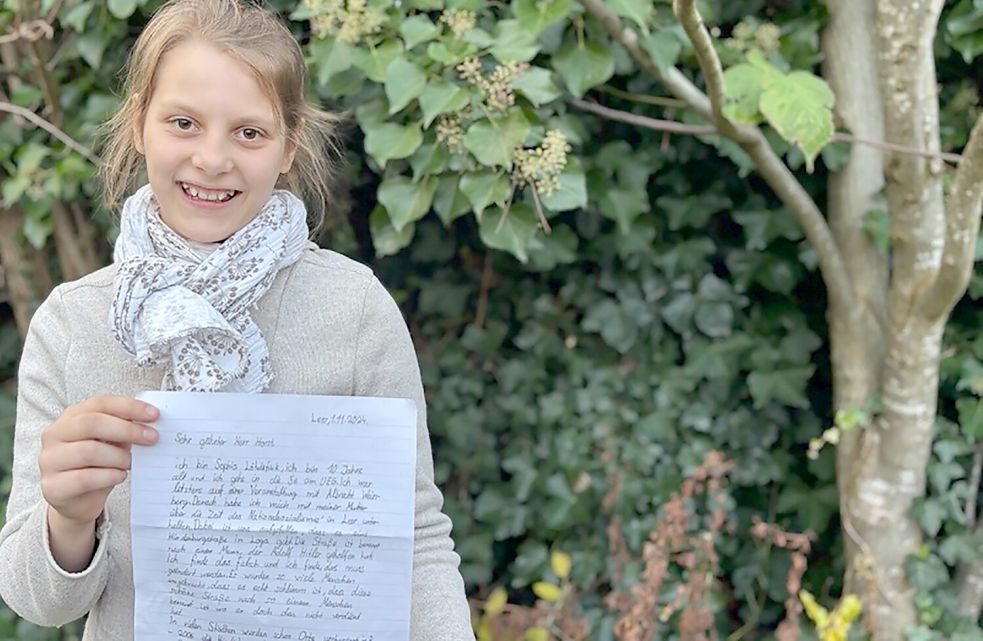 Leer, 1.11.2024
Sehr geehrter Herr Horst
ich bin Sophia ich bin 10 Jahre
alt und ich gehe in die 5a am UEG. Ich war
letztens auf einer Veranstaltung mit Albrecht Wein-
berg. Danach habe ich mich mit meiner Mutter
über die Zeit des Nationalsozialismus in Leer unter-
halten. Dabei ist uns aufgefallen, dass es eine
Hindenburgstraße in Loga gibt. Die Straße ist benannt
nach einem Mann, der Adolf Hitler geholfen hat
Ich finde das falsch und ich finde das muss
geändert werden. Es wurden so viele Menschen
umgebracht, dass es echt schlimm ist, dass diese
schöne Straße nach so einem Menschen
benannt ist wo er doch das nicht verdient
hat.
In vielen Städten wurden schon Orte
- 2006 die